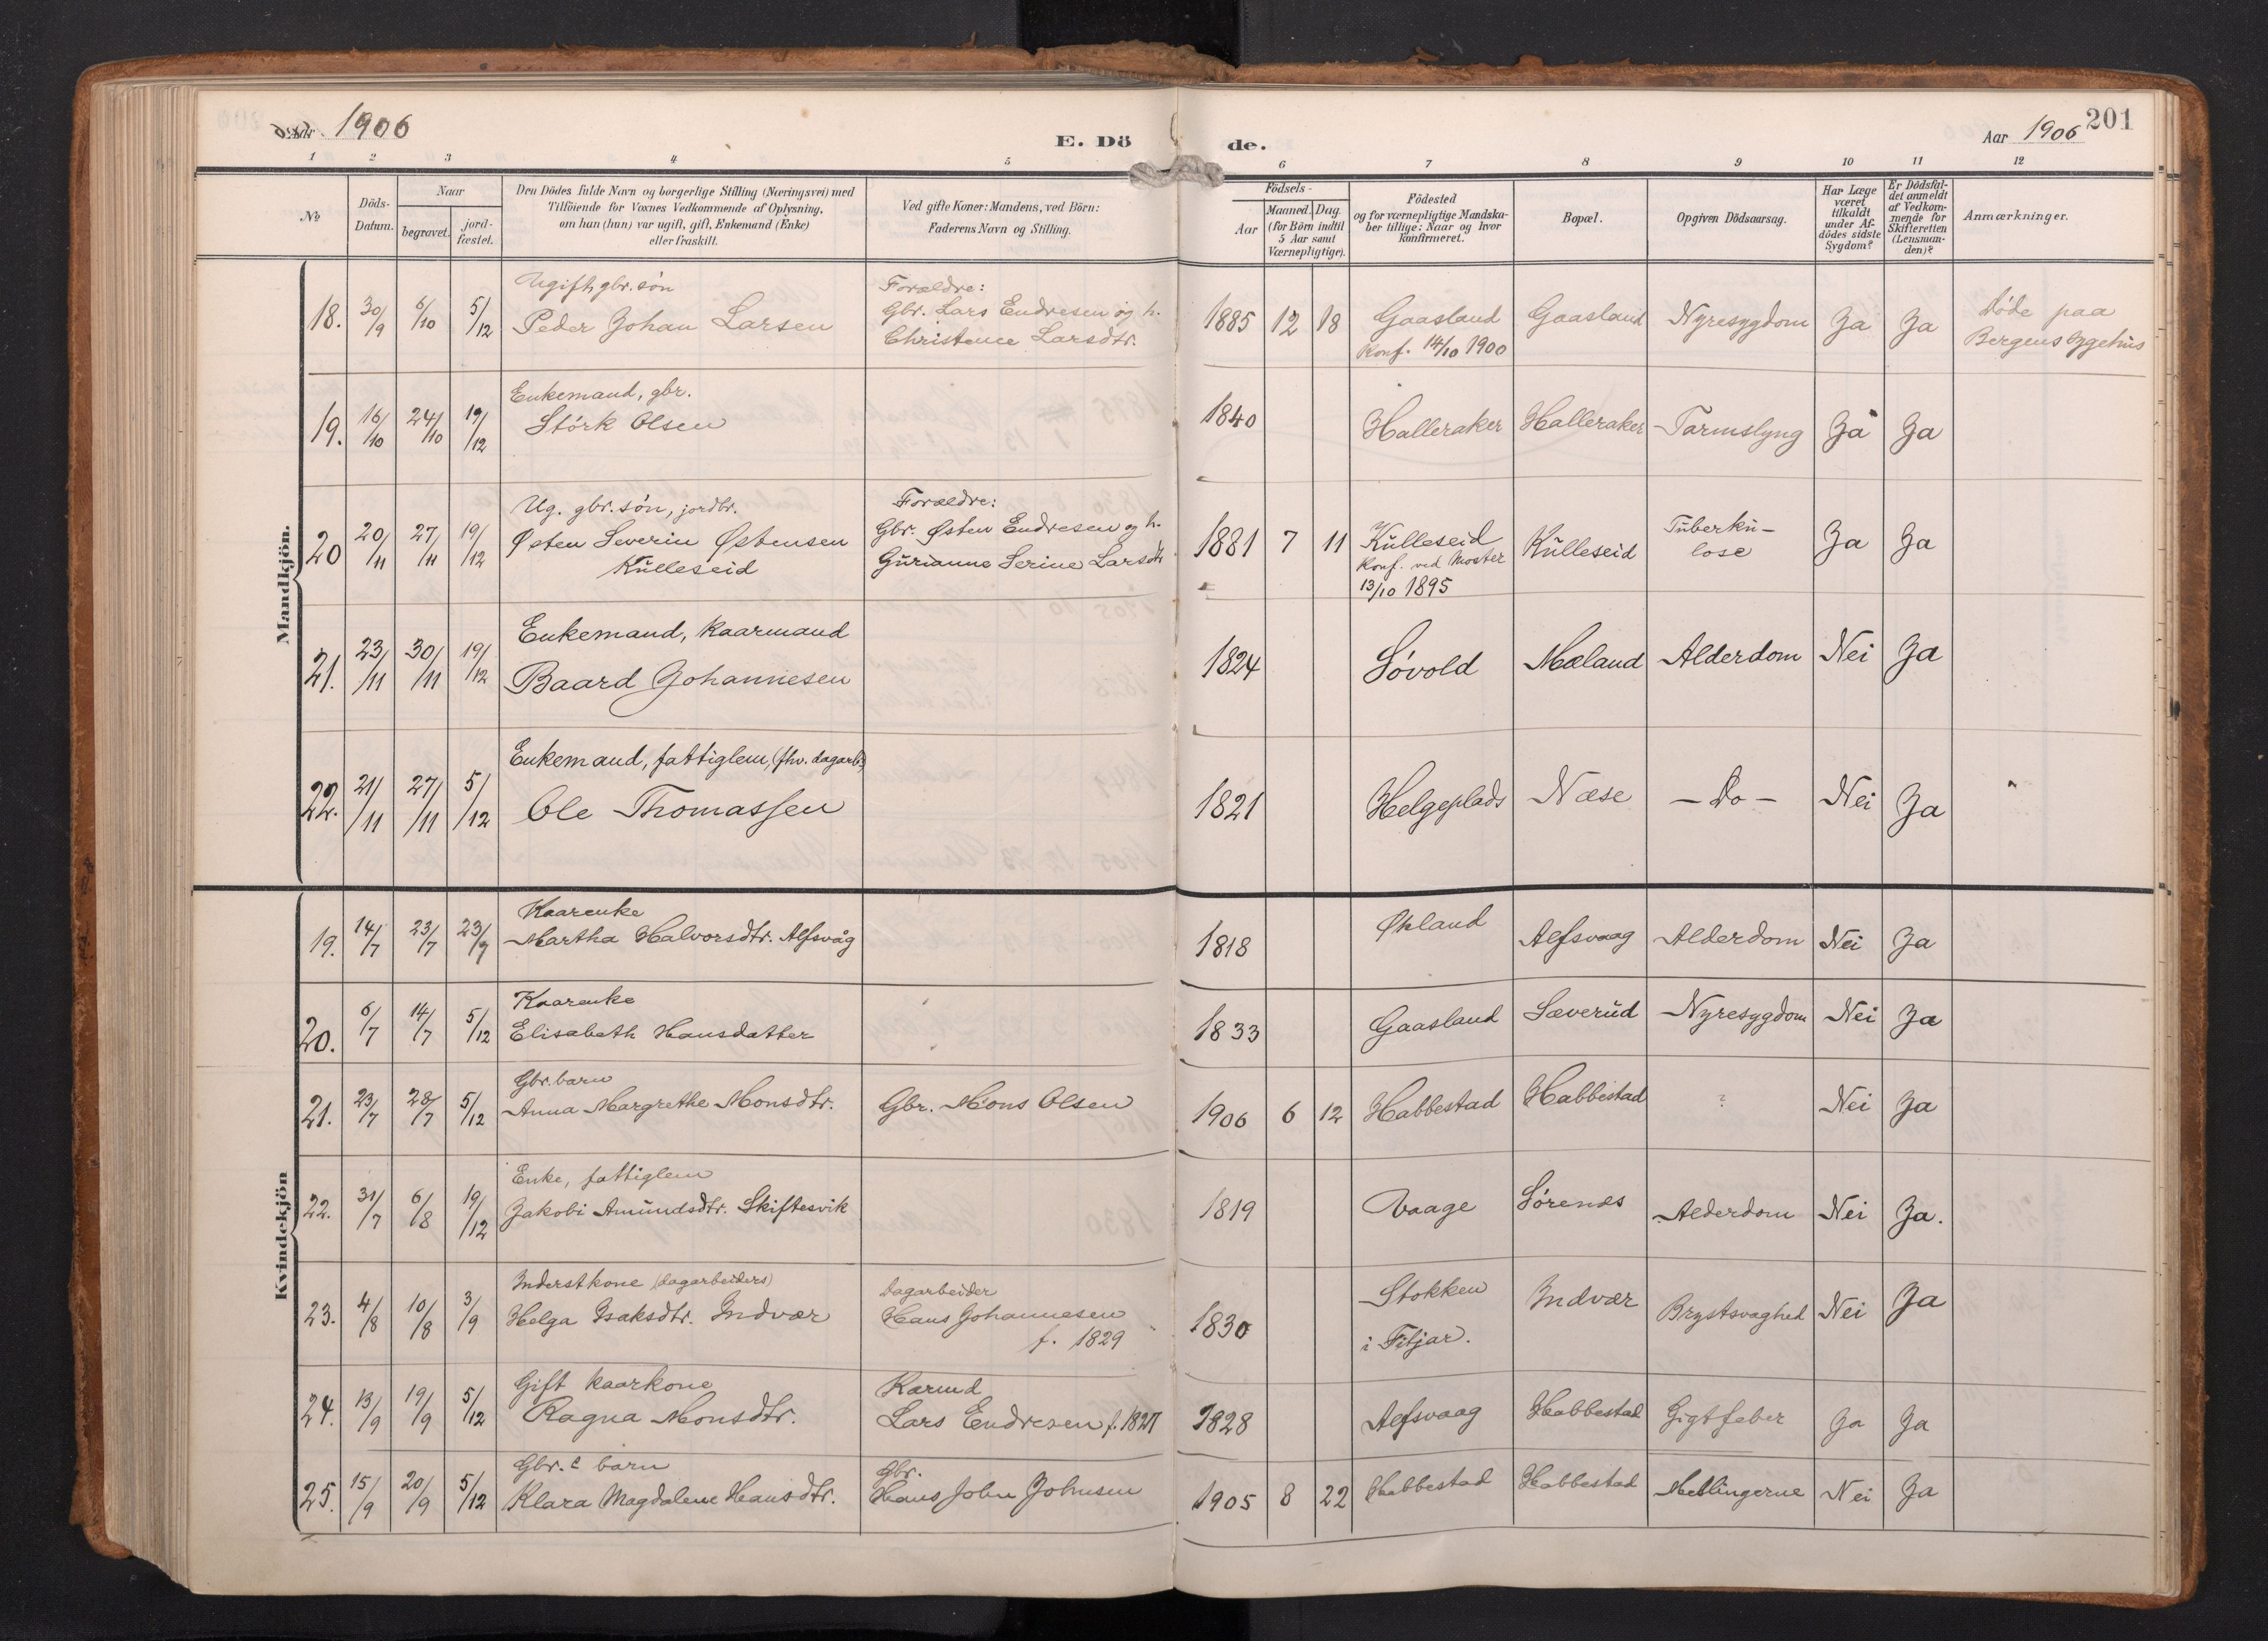 Aar 1906
E. Dö
de.
Aar 1906
201
1 2 3 4 5 6 7 8 9 10 11 12
№
Döds-
Datum.
Naar
begravet.
jord-
fæstet.
Den Dödes fulde Navn og borgerlige Stilling (Næringsvei) med
Tilföiende for Voxnes Vedkommende af Oplysning,
om han (hun) var ugift, gift, Enkemand (Enke)
eller fraskilt.
Ved gifte Koner: Mandens, ved Börn:
Faderens Navn og Stilling.
Födsels-
Aar
Maaned. Dag.
(for Börn indtil
5 Aar samt
Værnepligtige).
Födested
og for værnepligtige Mandska-
ber tillige: Naar og hvor
konfirmeret.
Bopæl.
Opgiven Dödsaarsag.
Har Læge
været
tilkaldt
under Af-
dödes sidste
Sygdom?
Er Dödsfal-
det anmeldt
af Vedkom-
mende for
Skifteretten
(Lensman-
den)?
Anmærkninger.
Mandkjön.
Ugift gbr. søn
Forældre:
18. 30/9 6/10 5/12 Peder Johan Larsen Gbr. Lars Endresen og h. 1885 12 18 Gaasland Gaasland Nyresygdom Ja Ja Døde paa
Christence Larsdtr. Konf. 14/10 1900 Bergens sygehus
Enkemand, gbr.
19. 16/10 24/10 19/12 Störk Olsen 1840 Halleraker Halleraker Tarmslyng Ja Ja
Ug. gbr. søn, jordbr. Forældre:
20 20/11 27/11 19/12 Østen Severin Østensen Gbr. Østen Endresen og h. 1881 7 11 Kulleseid Kulleseid Tuberku- Ja Ja
Kulleseid Gurianne Serine Larsdtr Konf. ved Moster lose
13/10 1895
Enkemand, kaarmand
21. 23/11 30/11 19/12 Baard Johannesen 1824 Løvold Mæland Alderdom Nei Ja
Enkemand, fattiglem, (fhv. dagarb.)
22. 21/11 27/11 5/12 Ole Thomassen 1821 Helgeplads Næse — Do — Nei Ja
Kvindekjön
Kaarenke
19. 14/7 23/7 23/9 Martha Halvorsdtr. Alfsvåg 1818 Økland Alfsvaag Alderdom Nei Ja
Kaarenke
20. 6/7 14/7 5/12 Elisabeth Hansdatter 1833 Gaasland Sæverud Nyresygdom Nei Ja
Gbr. barn
21. 23/7 28/7 5/12 Anna Margrethe Monsdtr. Gbr. Mons Olsen 1906 6 12 Habbestad Habbestad ? Nei Ja
Enke, fattiglem
22. 31/7 6/8 19/12 Jakobi Amundsdtr. Skiftesvik 1819 Vaage Sørenes Alderdom Nei Ja.
Inderstkone (dagarbeiders) Dagarbeider
23. 4/8 10/8 3/9 Helga Isaksdtr. Indvær Hans Johannesen 1830 Stokken Indvær Brystsvaghed Nei Ja
f. 1829 i Fitjar.
Gift kaarkone Karmd
24. 13/9 19/9 5/12 Ragna Monsdtr. Lars Endresen f. 1827 1828 Alfsvaag Habbestad Gigtfeber Ja Ja
Gbr. barn Gbr.
25. 15/9 20/9 5/12 Klara Magdalene Hansdtr. Hans John Johnsen 1905 8 22 Habbestad Habbestad Mellingerne Nei Ja